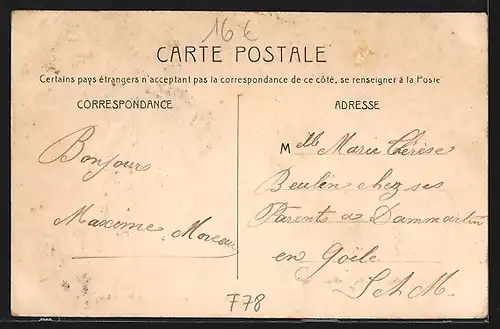 16 €
CARTE POSTALE
Certains pays étrangers n'acceptant pas la correspondance de ce côté, se renseigner à la Poste
CORRESPONDANCE
ADRESSE
Bonjours
Maxime Moreau
Mlle Marie Thérèse
Beulin chez ses
Parents a Dammartin
en Goële
S et M.
F78